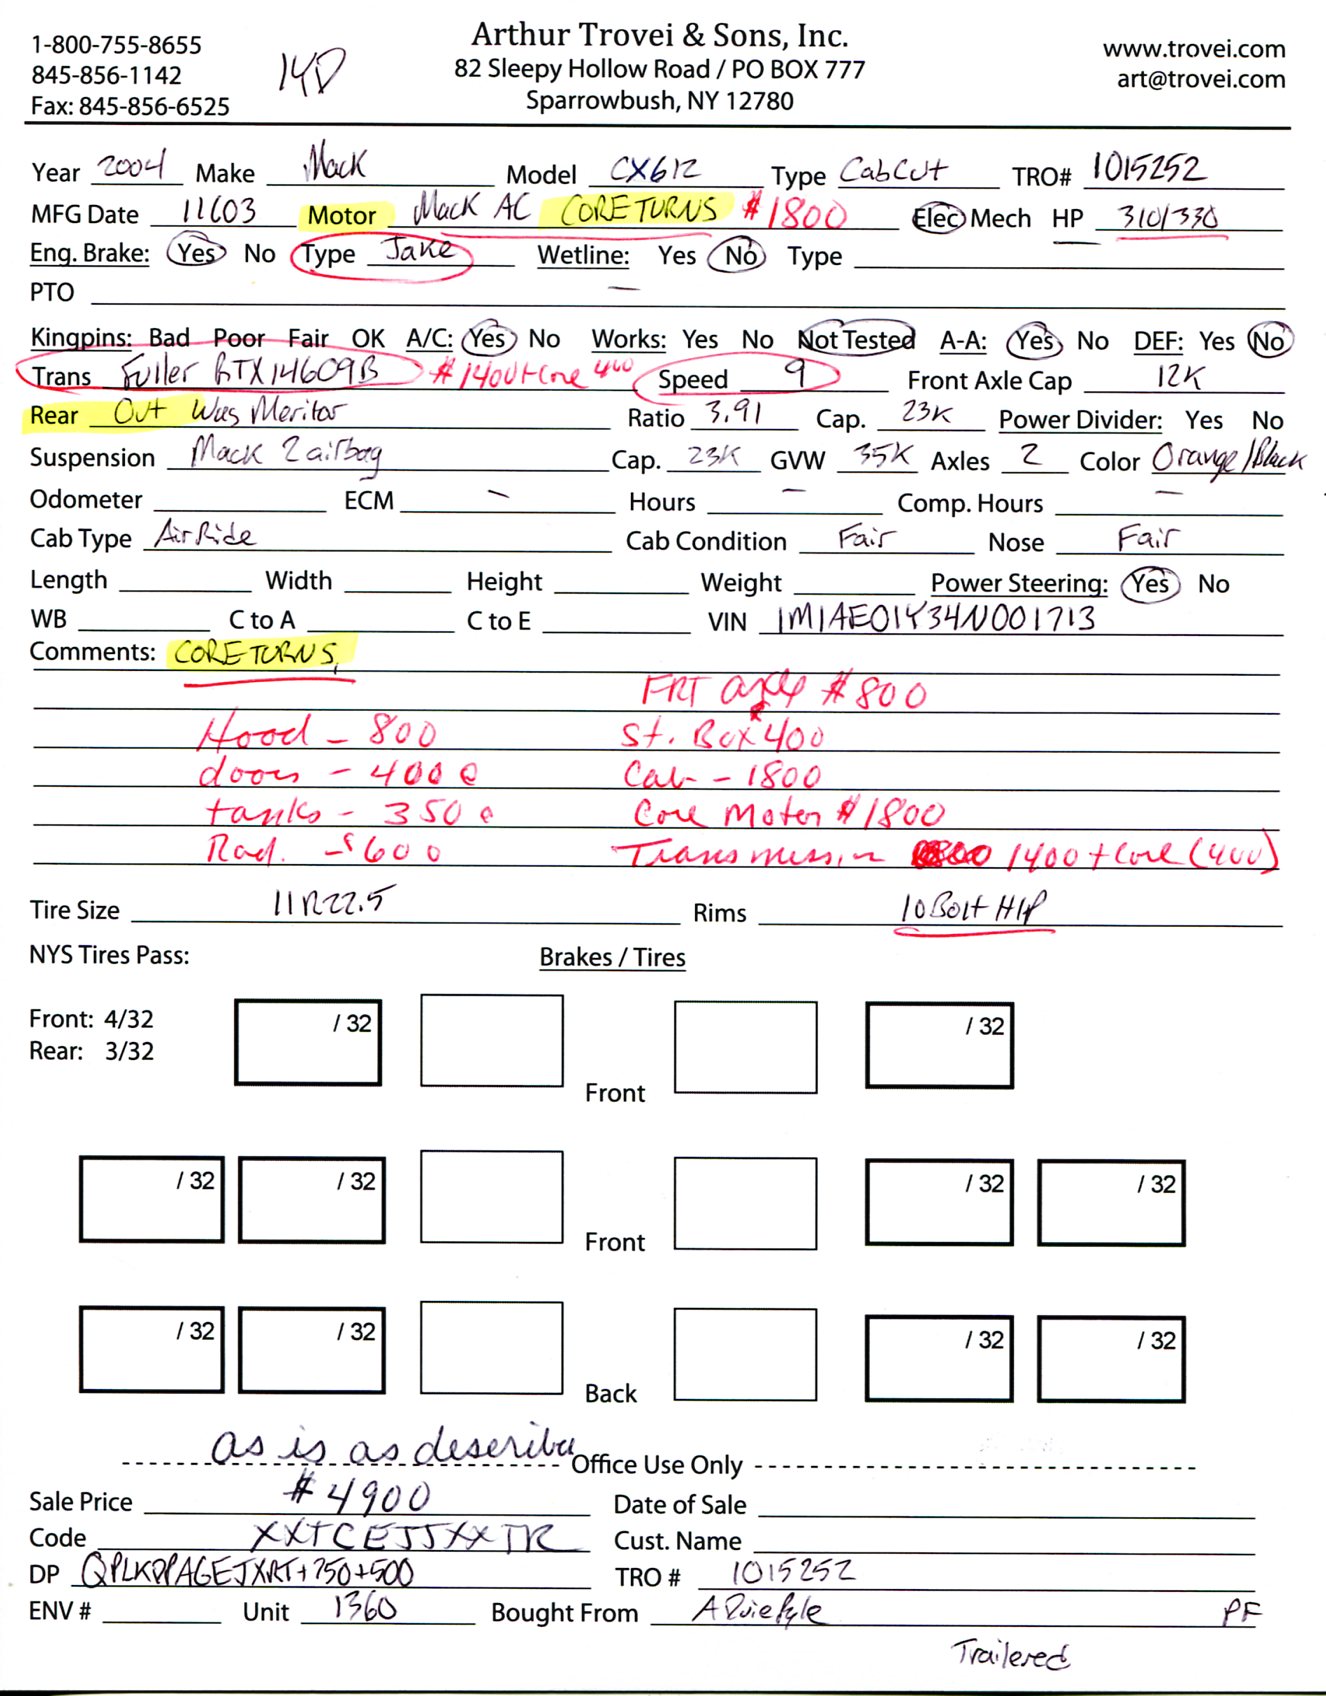 Arthur Trovei & Sons, Inc.
1-800-755-8655
82 Sleepy Hollow Road / PO BOX 777
www.trovei.com
845-856-1142
14D
art@trovei.com
Fax: 845-856-6525
Sparrowbush, NY 12780
Year 2004 Make Mack Model CX612 Type CabCut TRO# 1015252
MFG Date 11603 Motor Mack AC CORE TURNS $1800 Elec Mech HP 310/330
Eng. Brake: Yes No Type Jake Wetline: Yes No Type
PTO
Kingpins: Bad Poor Fair OK A/C: Yes No Works: Yes No Not Tested A-A: Yes No DEF: Yes No
Trans Fuller RTX14609B $1400+Core 400 Speed 9 Front Axle Cap 12K
Rear Out Was Meritor Ratio 3.91 Cap. 23K Power Divider: Yes No
Suspension Mack 2 airbag Cap. 23K GVW 35K Axles 2 Color Orange/Black
Odometer ECM - Hours - Comp. Hours -
Cab Type AirRide Cab Condition Fair Nose Fair
Length Width Height Weight Power Steering: Yes No
WB C to A C to E VIN 1M1AE01Y34N001713
Comments: CORE TURNS
FRT axle $800
Hood - 800 St. Box 400
doors - 400 e Cab - 1800
tanks - 350 e Core Moter $1800
Rad. - $600 Transmission 1400 + Core (400)
Tire Size 11R22.5 Rims 10 Bolt HP
NYS Tires Pass: Brakes / Tires
Front: 4/32
Rear: 3/32
/ 32 / 32
Front
/ 32 / 32 / 32 / 32
Front
/ 32 / 32 / 32 / 32
Back
as is as describe
Office Use Only
Sale Price $4900 Date of Sale
Code XXTCEJJXXTR Cust. Name
DP QPLKDPAGEJXRT+750+500 TRO # 1015252
ENV # Unit 1360 Bought From PF
Trailered